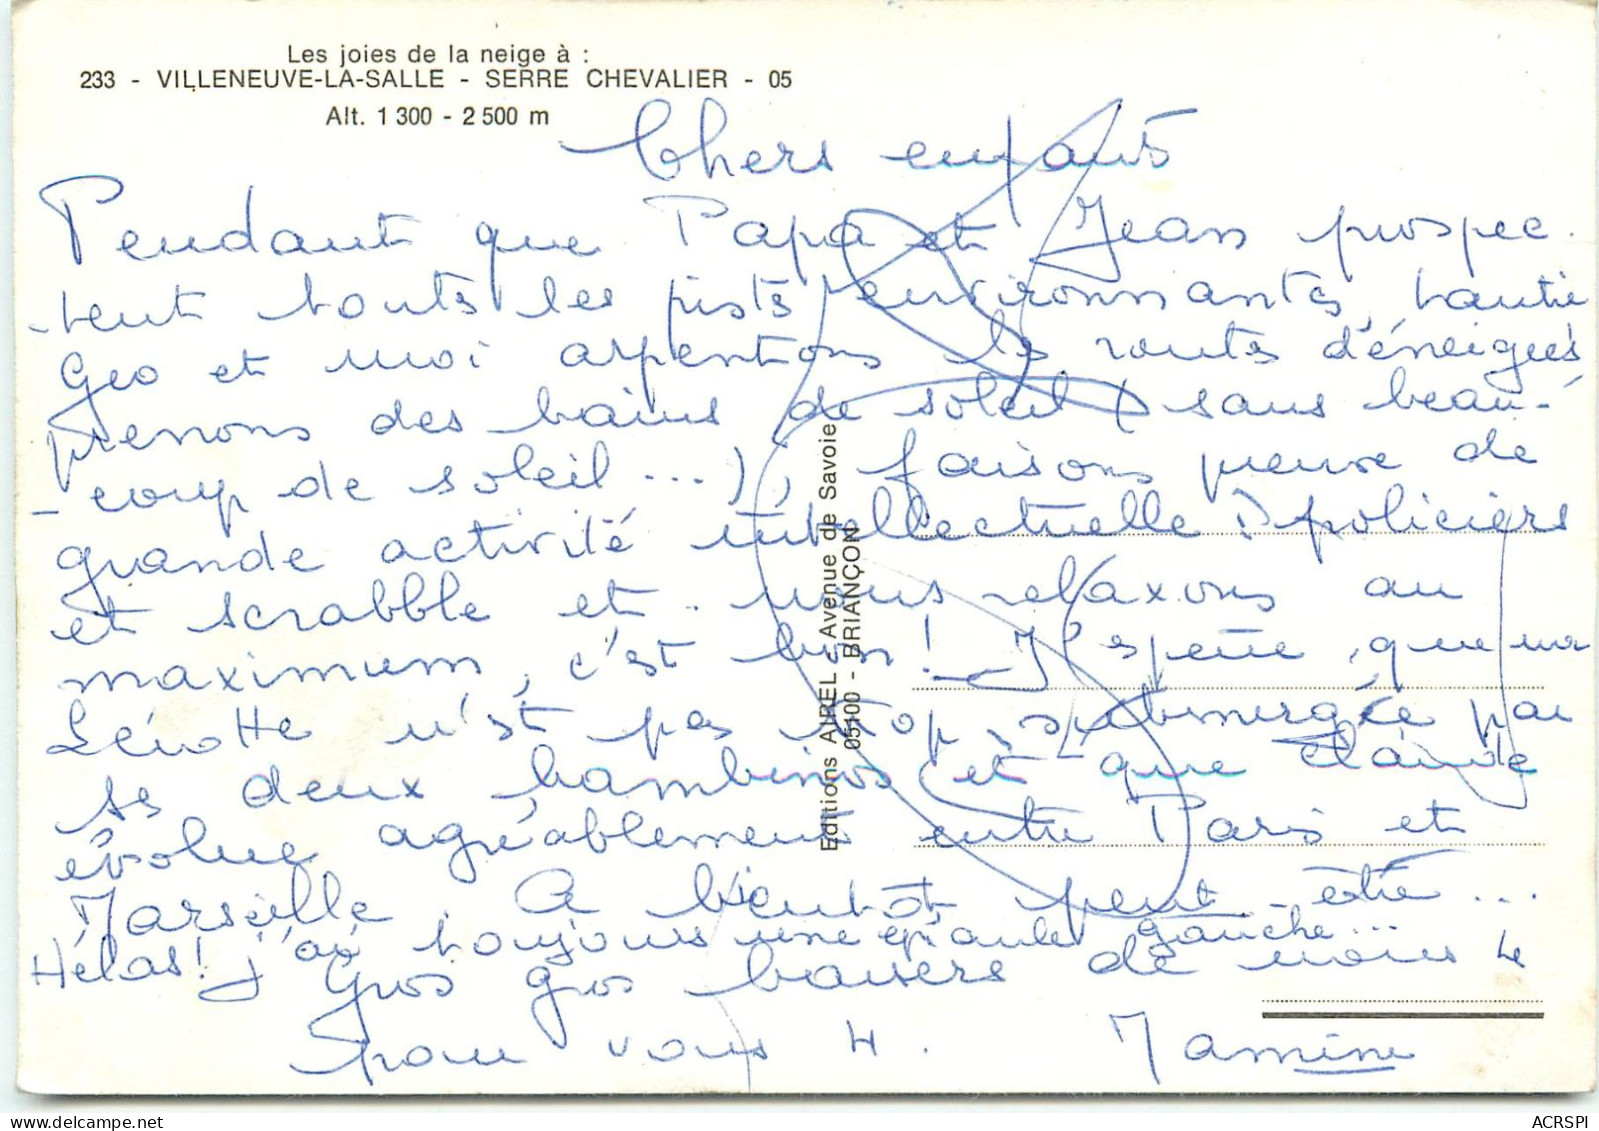 Les joies de la neige à :
233 - VILLENEUVE-LA-SALLE - SERRE CHEVALIER - 05
Alt. 1 300 - 2 500 m
Chers enfants
Pendant que Papa et Jean prospec-
-tent toutes les pistes environnantes, tantie
Geo et moi arpentons les routes d'énéigées
prenons des bains de soleil (sans beau-
-coup de soleil...), faisons preuve de
grande activité intellectuelle : policiers
et scrabble et nous relaxons au
maximum, c'est bon ! J'espère que
n'est pas trop submergée par
ses deux bambinos et que Claude
évolue agréablement entre Paris et
Marseille. A bientôt peut-être...
Hélas ! j'ai toujours une épaule gauche...
Gros gros baisers de nous 4
pour vous 4. Mamine
Editions AIREL - Avenue de Savoie
05100 - BRIANÇON
ACRSPI